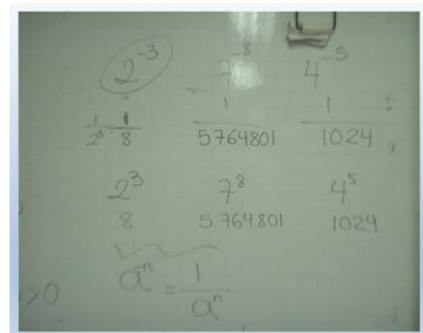 2⁻³ 7⁻⁸ 4⁻⁵
1/2³ = 1/8 1/5764801 1/1024
2³ 7⁸ 4⁵
8 5.764.801 1024
a⁻ⁿ = 1/aⁿ
>0